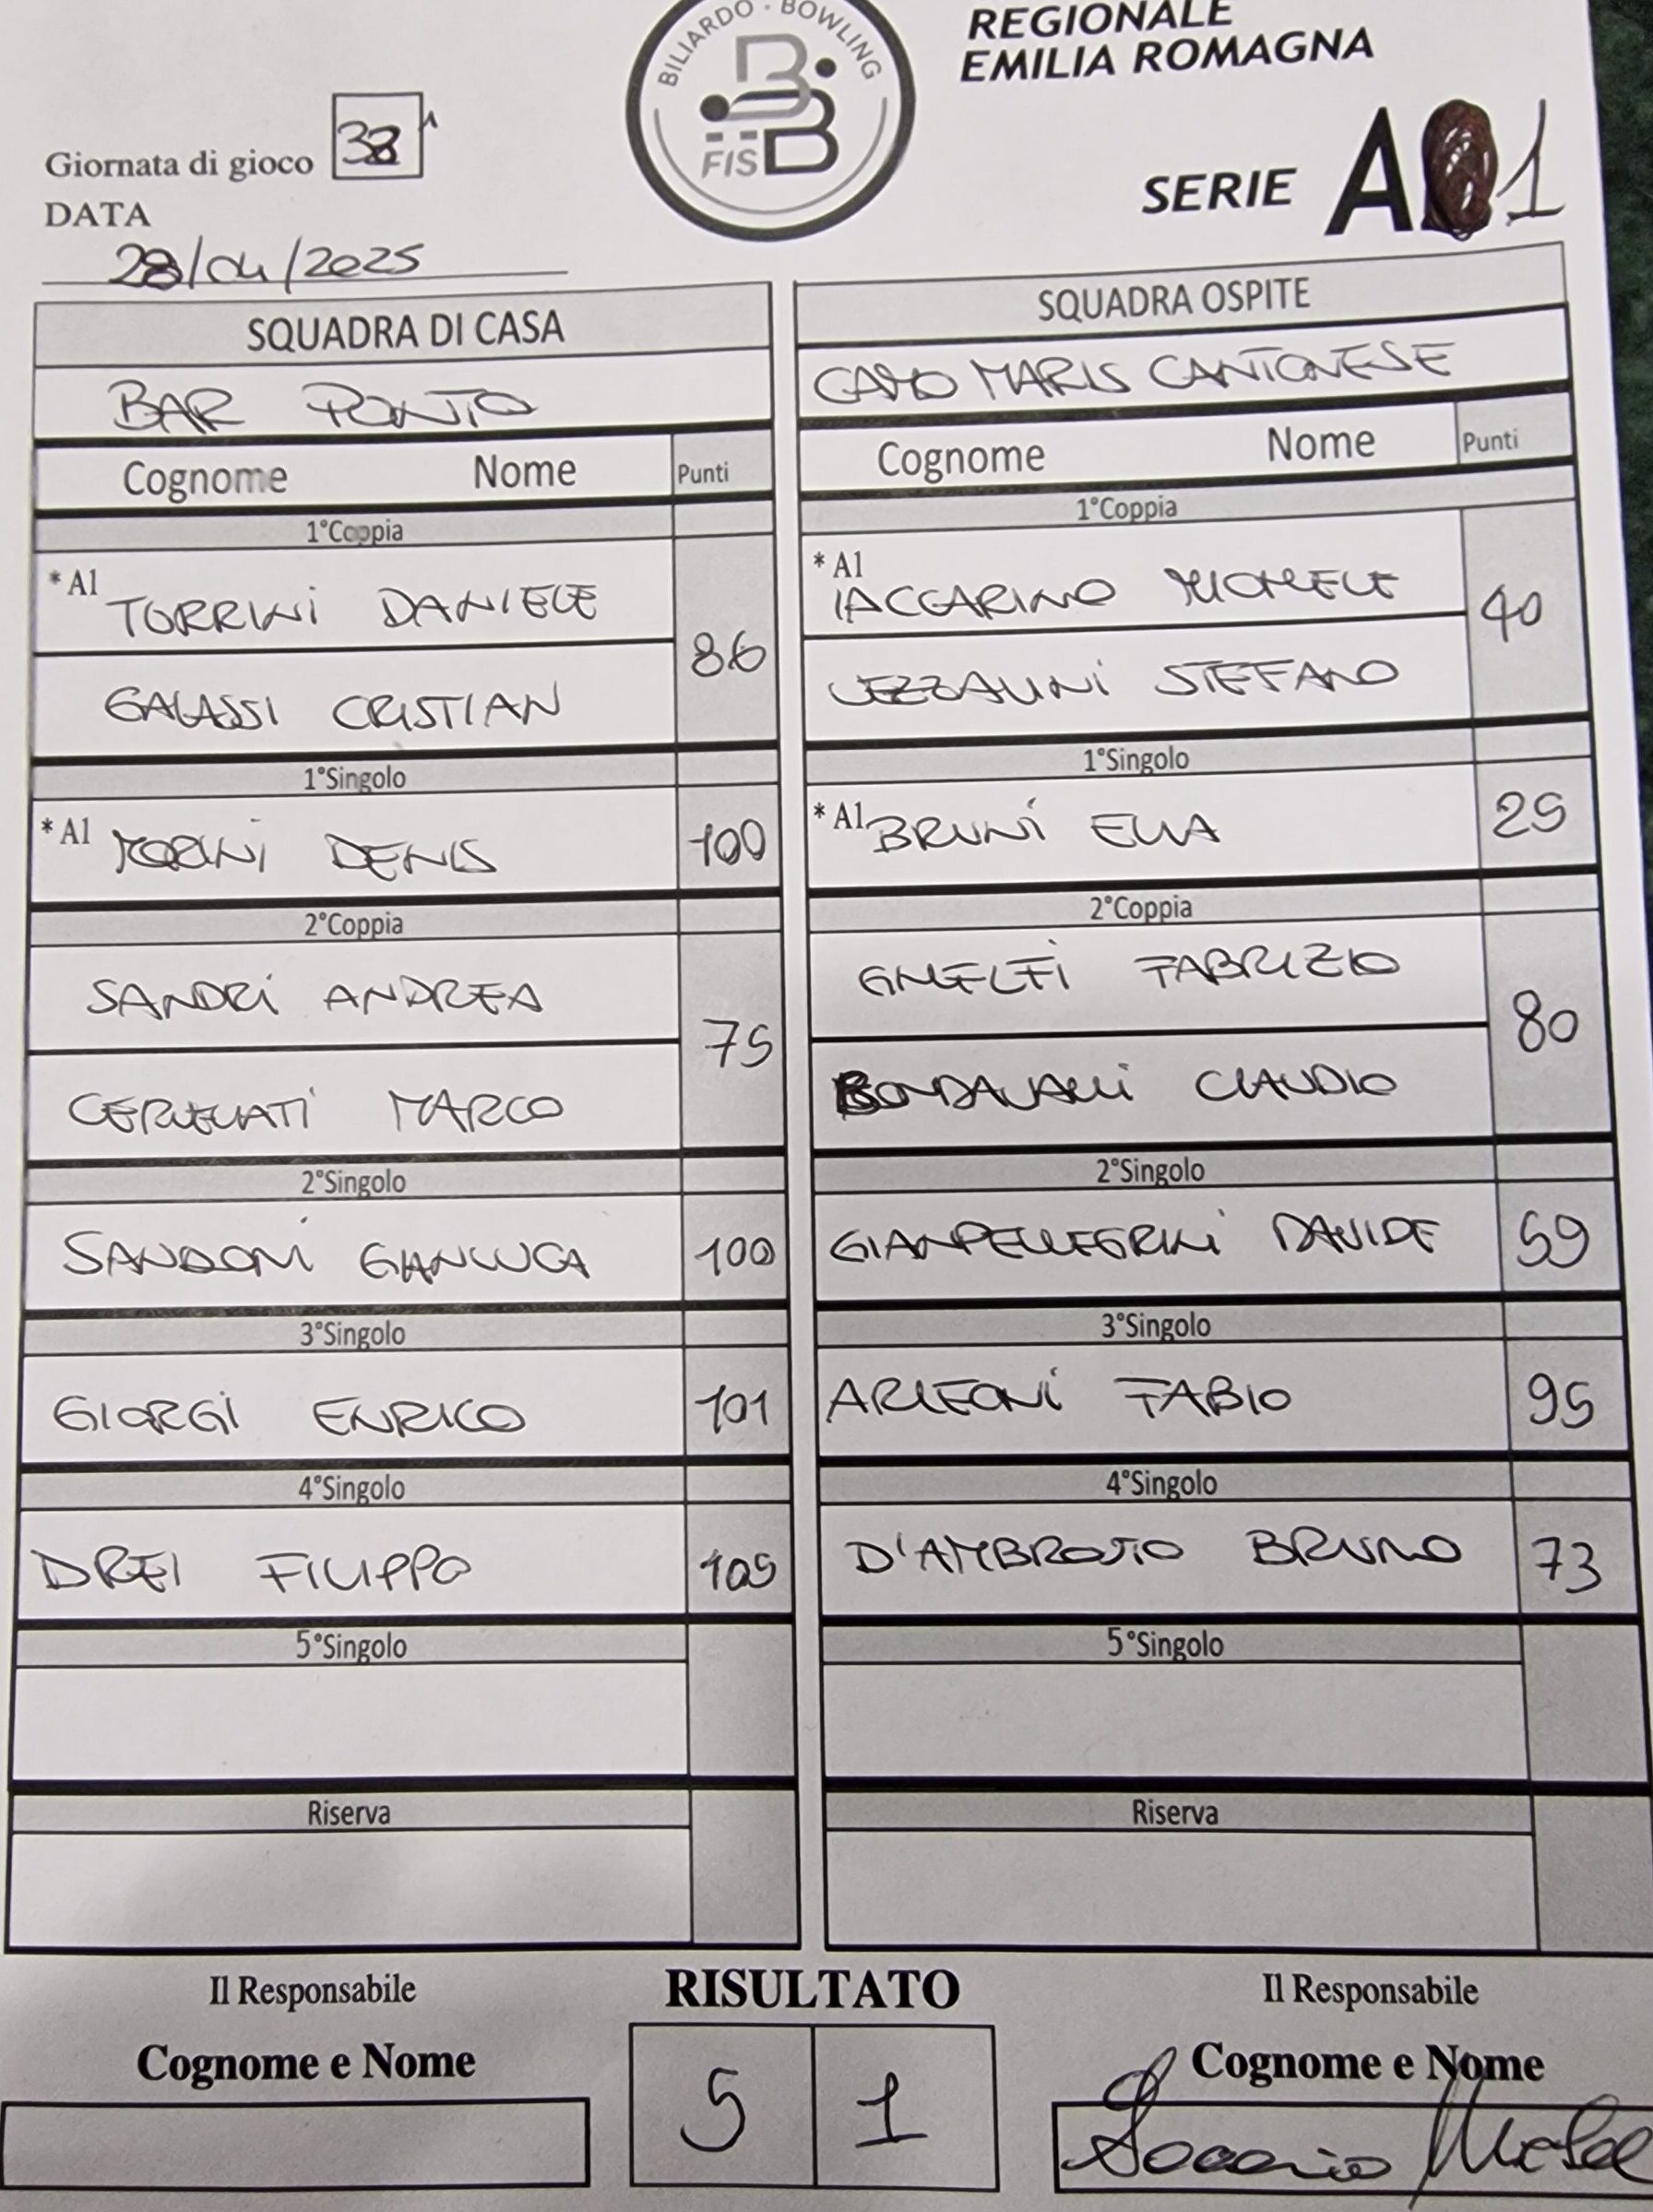 BILIARDO · BOWLING
FISBB
REGIONALE
EMILIA ROMAGNA
SERIE A 1
Giornata di gioco 38
DATA
28/04/2025
SQUADRA DI CASA
BAR PONTO
Cognome Nome Punti
1°Coppia
*A1 TORRINI DANIELE
86
GALASSI CRISTIAN
1°Singolo
*A1 MORINI DENIS 100
2°Coppia
SANDRI ANDREA
75
MARCO
2°Singolo
SANDONI GIANLUCA 100
3°Singolo
GIORGI ENRICO 101
4°Singolo
DREI FILIPPO 109
5°Singolo
Riserva
SQUADRA OSPITE
MARIS CANTONESE
Cognome Nome Punti
1°Coppia
*A1
IACCARINO MICHELE
40
LEZZALINI STEFANO
1°Singolo
*A1 BRUNI ELIA 29
2°Coppia
GHELFI FABRIZIO
80
BONDAVALLI CLAUDIO
2°Singolo
GIANPELLEGRINI DAVIDE 59
3°Singolo
ARLEONI FABIO 95
4°Singolo
D'AMBROSIO BRUNO 73
5°Singolo
Riserva
Il Responsabile
Cognome e Nome
RISULTATO
5 1
Il Responsabile
Cognome e Nome